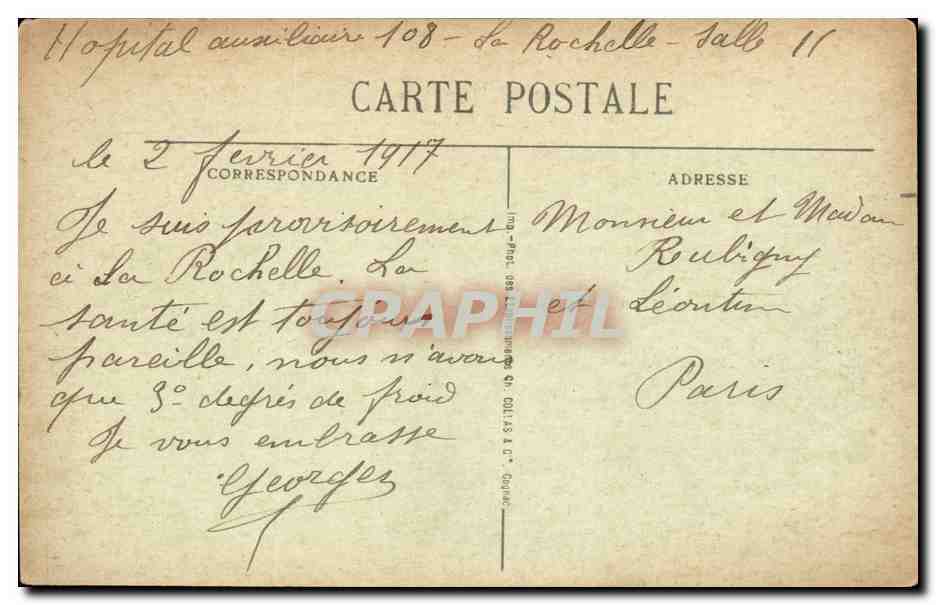 Hopital auxiliaire 108 - La Rochelle - Salle 11
CARTE POSTALE
le 2 fevrier 1917
CORRESPONDANCE
ADRESSE
Je suis provisoirement
à La Rochelle. La
santé est toujours
pareille, nous n'avons
que 3° degrés de froid
Je vous embrasse
Georges
Imp.-Phot. des Établissements Ch. COLLAS & Cie, Cognac
Monsieur et Madam
Rubigny
et Léontin
Paris
GRAPHIL